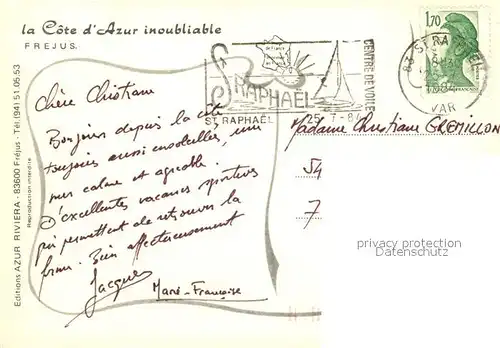 la Côte d'Azur inoubliable
FREJUS.
1,70
83 ST RAPHAEL
VAR
ST RAPHAËL
ST RAPHAËL
25-7-84
CENTRE DE VOILE
Chère Christiane
Bonjour depuis la côte
toujours aussi ensoleillée, une
mer calme et agréable.
D'excellentes vacances sportives
qui permettent de retrouver la
forme. Bien affectueusement
Jacques
Marie-Françoise
Madame Christiane GREMILLON
54
7
privacy protection
Datenschutz
Editions AZUR RIVIERA - 83600 Fréjus - Tél. (94) 51 05 53
Reproduction interdite